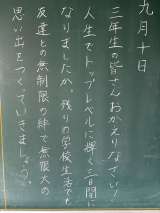 九月十日
三年生の皆さんおかえりなさい！
人生でトップレベルに輝く三日間に
なりましたか。残りの学校生活でも
友達との無制限の絆で無限大の
思い出をつくっていきましょう。